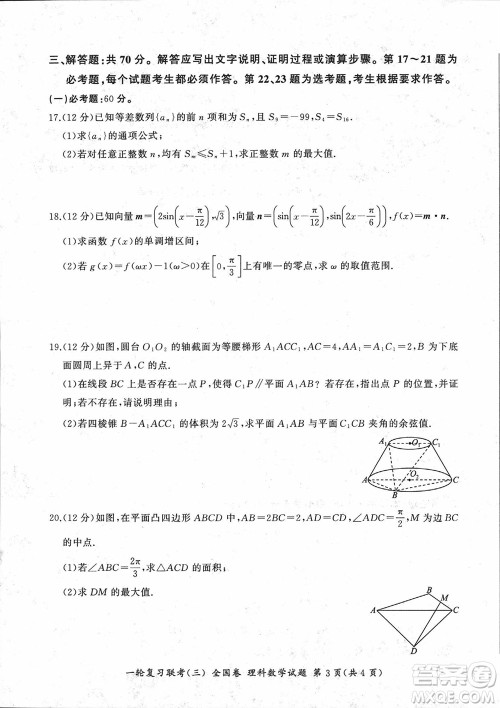 三、解答题:共70分。解答应写出文字说明、证明过程或演算步骤。第17~21题为
必考题,每个试题考生都必须作答。第22、23题为选考题,考生根据要求作答。
(一)必考题:60分。
17.(12分)已知等差数列{aₙ}的前n项和为Sₙ, =-99,S₄=S₁₆.
(1)求{aₙ}的通项公式;
(2)若对任意正整数n,均有Sₘ≤Sₙ+1,求m的最大值.
18.(12分)已知向量m=(2sin(x-π/12),√3),向量n=(sin(x-π/12),sin2(x-π/12)),f(x)=m·n.
(1)求函数f(x)的单调增区间;
(2)若g(x)=f(ωx)-1(ω>0)在[0,π/3]上有唯一的零点,求ω的取值范围.
19.(12分)如图,圆台O₁O₂的轴截面为等腰梯形A₁ACC₁,AC=2AA₁=2A₁C₁=4,B为下底
面圆周上异于A,C的点.
(1)在线段BC上是否存在一点P,使得C₁P∥平面A₁AB?若存在,指出点P的位置,并证
明;若不存在,请说明理由;
(2)若四棱锥B-A₁ACC₁的体积为2√3,求平面A₁AB与平面C₁CB夹角的余弦值.
A₁ O₂ C₁
A O₁ C
B
20.(12分)如图,在平面凸四边形ABCD中,AB=2,BC=4,AD=CD,∠ADC=π/2,M为边BC
的中点.
(1)若∠ABC=2π/3,求△ACD的面积;
(2)求DM的最大值.
B
M
A C
D
一轮复习联考(三) 全国卷 理科数学试题 第3页(共4页)